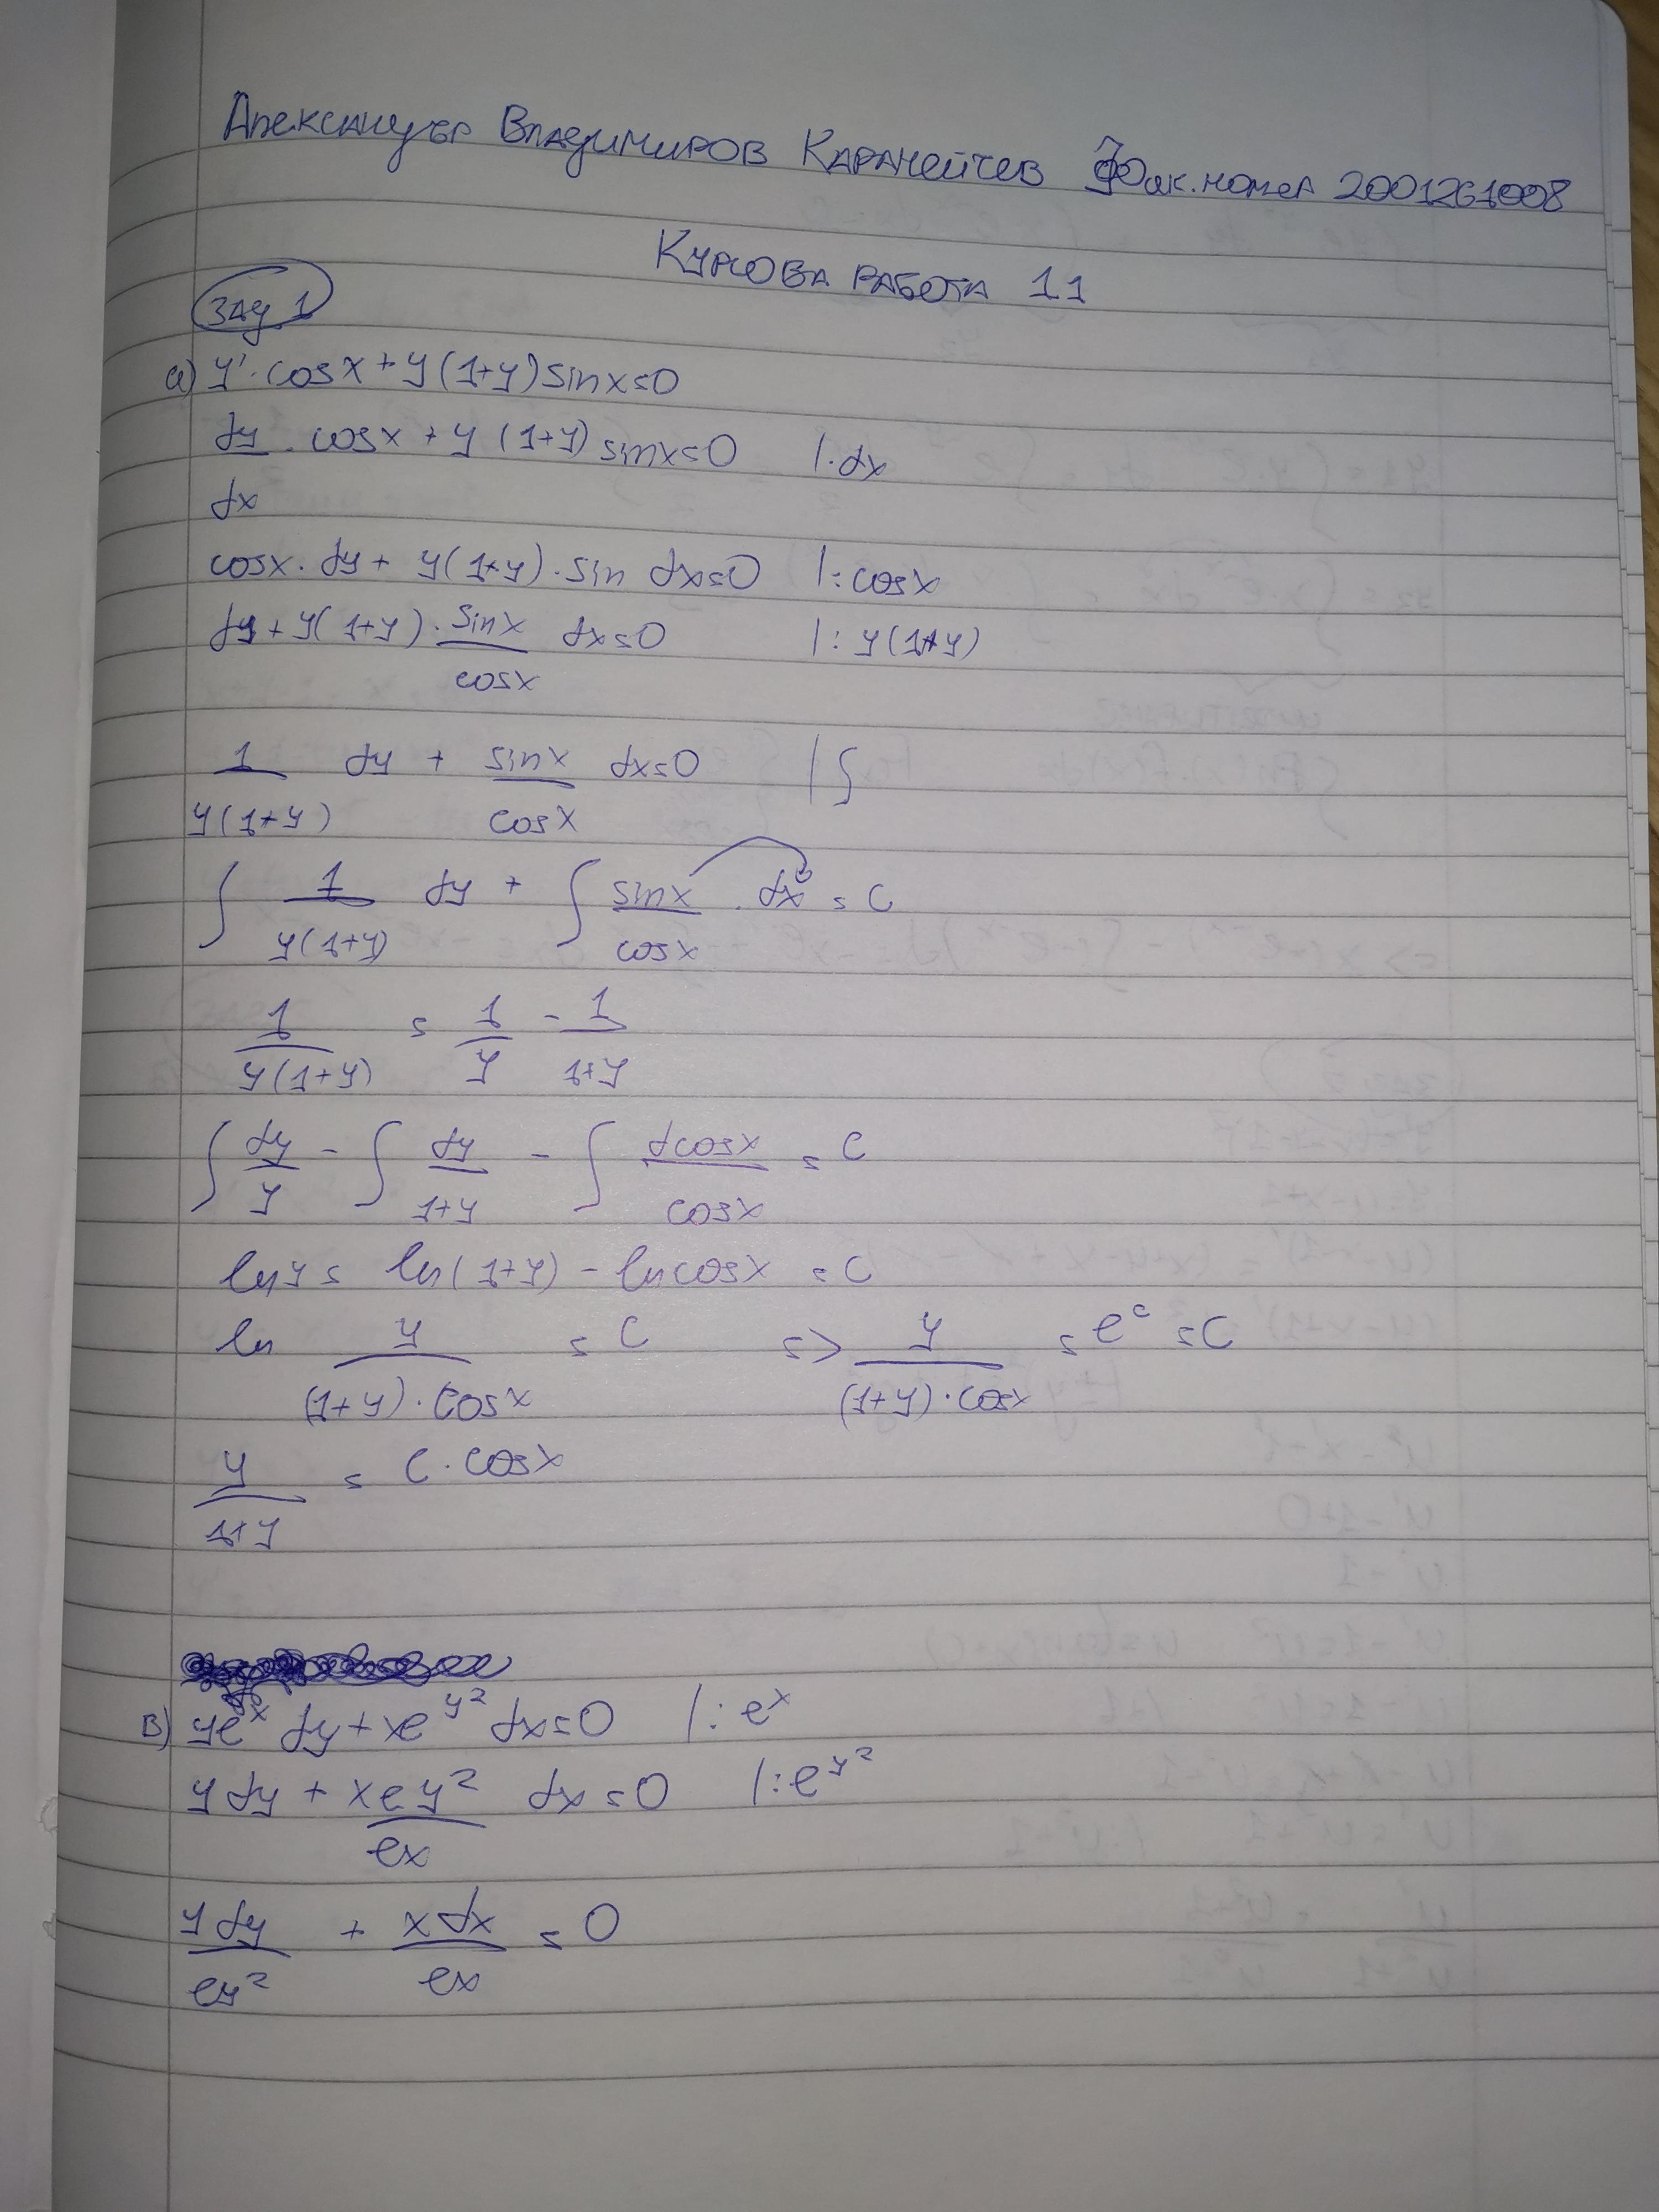 Александър Владимиров Каранейчев Фак. номер 2001261008
Курсова работа 11
Зад. 1
а) y' · cosx + y(1+y) sinx = 0
dy/dx · cosx + y(1+y) sinx = 0 |·dx
cosx · dy + y(1+y) · sin dx = 0 |: cosx
dy + y(1+y) · sinx/cosx dx = 0 |: y(1+y)
1/y(1+y) dy + sinx/cosx dx = 0 |∫
∫ 1/y(1+y) dy + ∫ sinx/cosx · dx = C
1/y(1+y) = 1/y - 1/1+y
∫ dy/y - ∫ dy/1+y - ∫ dcosx/cosx = C
ln y = ln(1+y) - ln cosx = C
ln y/(1+y)·cosx = C => y/(1+y)·cosx = e^c = C
y/1+y = C · cosx
в) ye^x dy + xe^y² dx = 0 |: e^x
y dy + xey²/ex dx = 0 |: e^y²
y dy/ey² + x dx/ex = 0